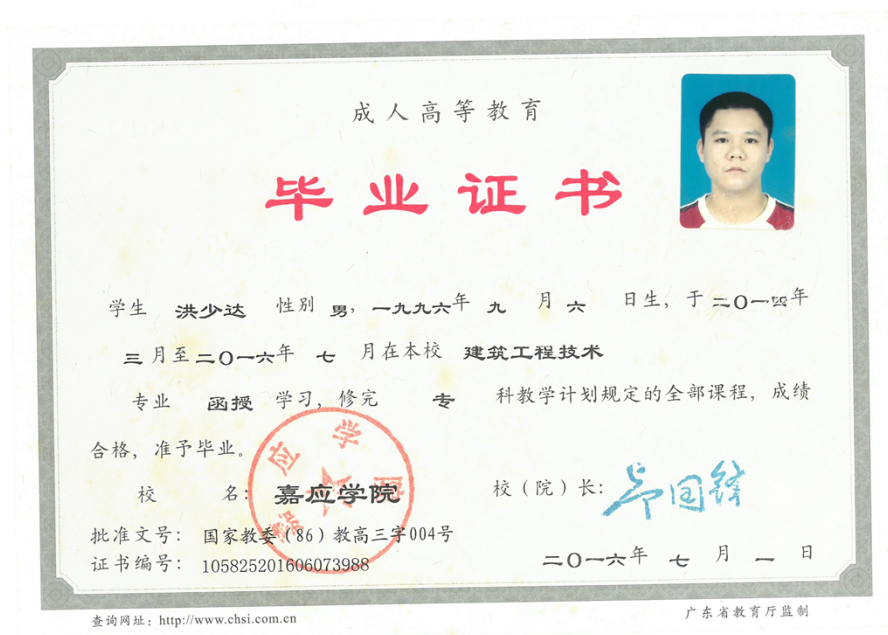 成人高等教育
毕业证书
学生 洪少达 性别 男，一九九六年 九 月 六 日生，于 二〇一四年
三月至二〇一六年 七 月在本校 建筑工程技术
专业 函授 学习，修完 专 科教学计划规定的全部课程，成绩
合格，准予毕业。
校 名：嘉应学院 校（院）长：
批准文号：国家教委（86）教高三字004号
证书编号：105825201606073988 二〇一六年 七 月 一 日
查询网址：http://www.chsi.com.cn 广东省教育厅监制